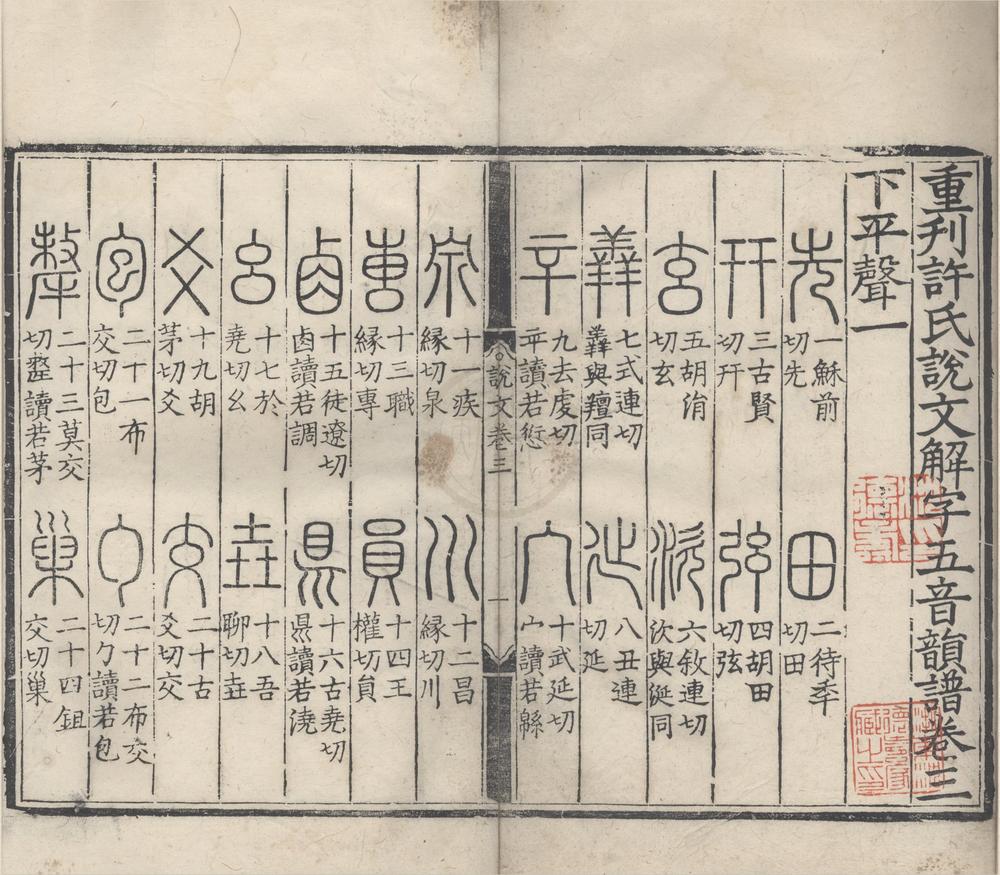 重刋許氏說文解字五音韻譜卷三
下平聲一
先 一穌前切先
田 二待秊切田
幵 三古賢切幵
弦 四胡田切弦
玄 五胡涓切玄
㳄 六敘連切㳄與涎同
羴 七式連切羴與羶同
㢟 八丑連切㢟
䇂 九去虔切䇂讀若愆
宀 十武延切宀讀若緜
說文卷三
一
泉 十一疾緣切泉
川 十二昌緣切川
叀 十三職緣切專
員 十四王權切員
卤 十五徒遼切卤讀若調
県 十六古堯切県讀若澆
幺 十七於堯切幺
垚 十八吾聊切垚
爻 十九胡茅切爻
交 二十古爻切交
包 二十一布交切包
勹 二十二布交切勹讀若包
犛 二十三莫交切犛讀若茅
巢 二十四鉏交切巢